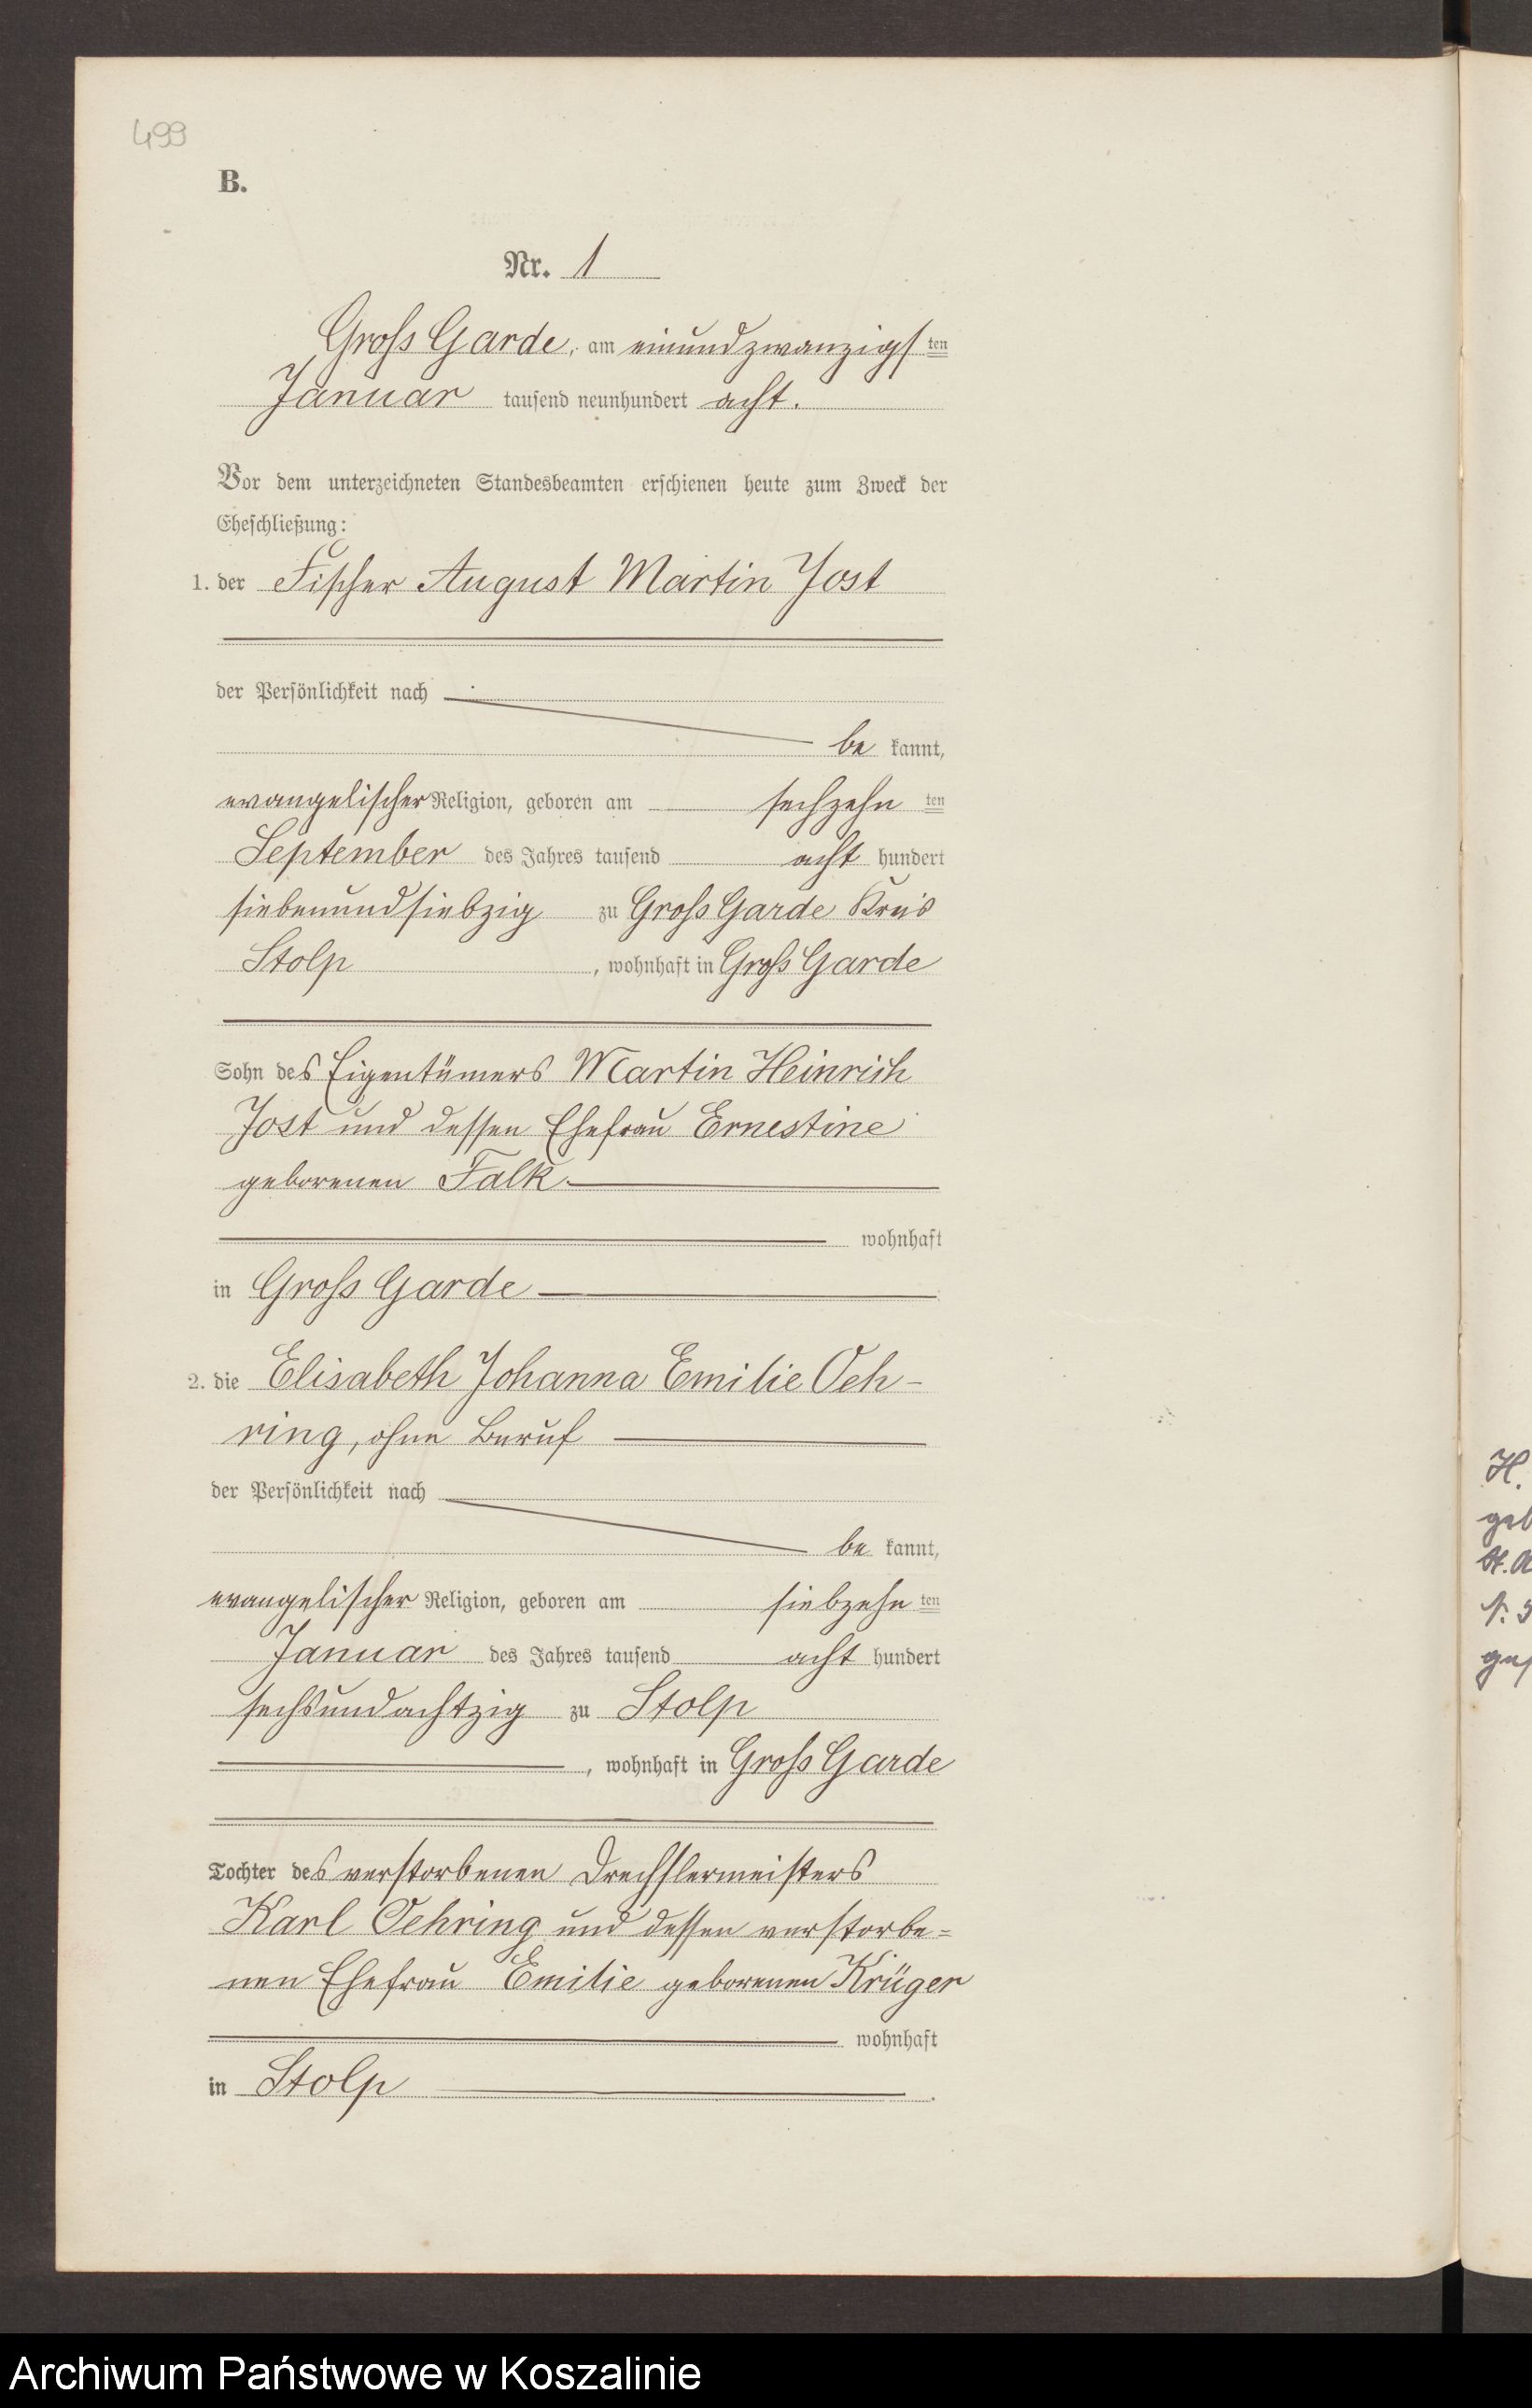 499
B.
Nr. 1
Gross Garde, am einundzwanzigsten
Januar tausend neunhundert acht.
Vor dem unterzeichneten Standesbeamten erschienen heute zum Zweck der
Eheschließung:
1. der Fischer August Martin Jost
der Persönlichkeit nach
be kannt,
evangelischer Religion, geboren am sechzehn ten
September des Jahres tausend acht hundert
siebenundsiebzig zu Gross Garde Kreis
Stolp, wohnhaft in Gross Garde
Sohn des Eigentümers Martin Heinrich
Jost und dessen Ehefrau Ernestine
geborenen Falk.
wohnhaft
in Gross Garde
2. die Elisabeth Johanna Emilie Oeh-
ring, ohne Beruf
der Persönlichkeit nach
be kannt,
evangelischer Religion, geboren am siebzehn ten
Januar des Jahres tausend acht hundert
sechsundachtzig zu Stolp
, wohnhaft in Gross Garde
Tochter des verstorbenen Drechslermeisters
Karl Oehring und dessen verstorbe=
nen Ehefrau Emilie geborenen Krüger
wohnhaft
in Stolp.
H.
geb
Archiwum Państwowe w Koszalinie